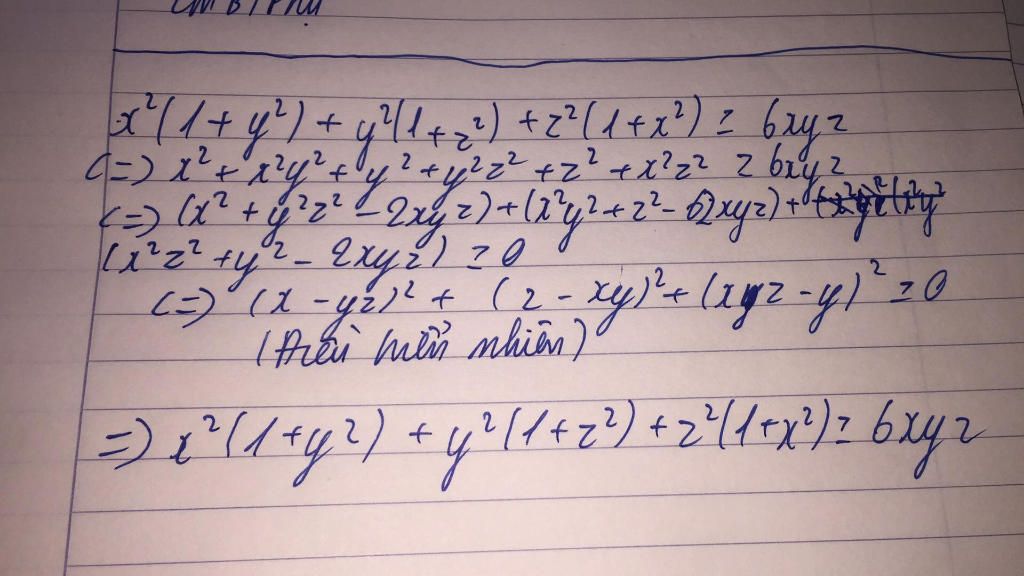 x²(1+y²) + y²(1+z²) + z²(1+x²) ≥ 6xyz
(=) x² + x²y² + y² + y²z² + z² + x²z² ≥ 6xyz
(=) (x² + y²z² - 2xyz) + (x²y² + z² - 2xyz) +
(x²z² + y² - 2xyz) ≥ 0
(=) (x - yz)² + (z - xy)² + (xz - y)² ≥ 0
(Điều hiển nhiên)
=) x²(1+y²) + y²(1+z²) + z²(1+x²) ≥ 6xyz